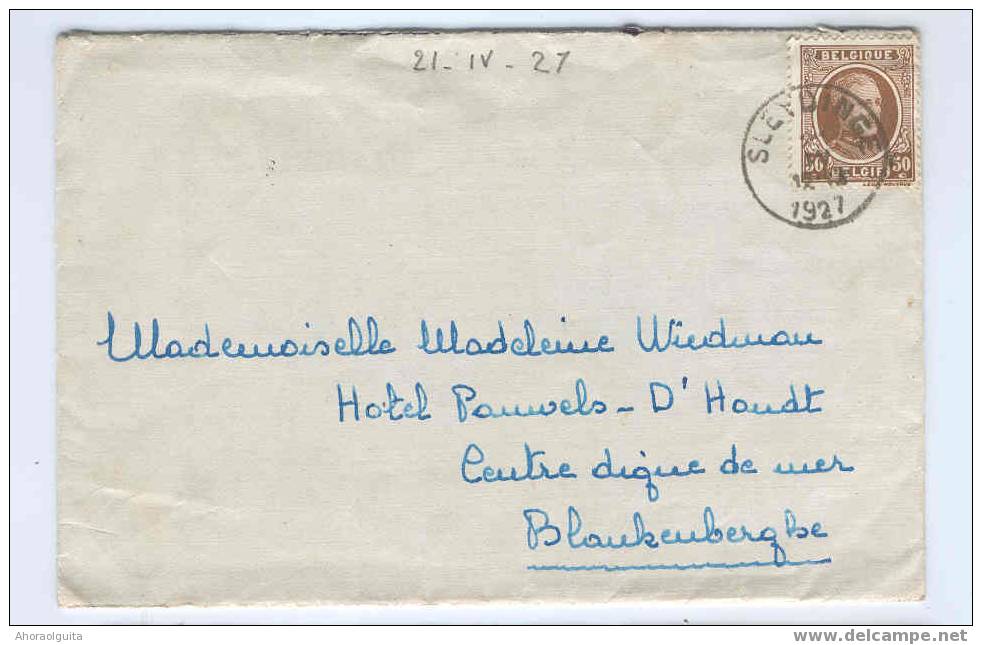 21-IV-27
BELGIQUE
SLEYDINGE
50 50
BELGIË
1927
Mademoiselle Madeleine Wiedman
Hotel Pauwels-D'Hondt
Centre digue de mer
Blankenberghe
Ahoraolguita
www.delcampe.net